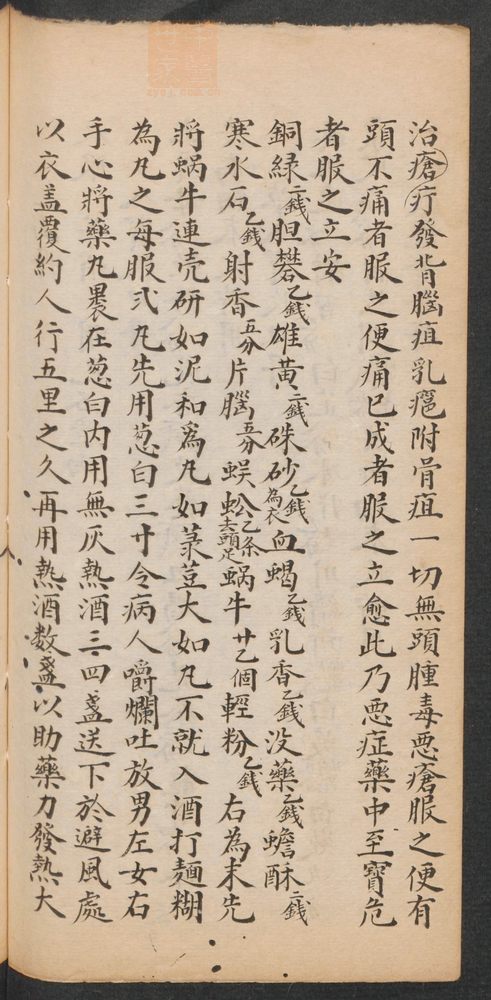 治瘡疔發背腦疽乳癰附骨疽一切無頭腫毒悪瘡服之便有
頭不痛者服之便痛已成者服之立愈此乃悪症藥中至寳危
者服之立安
銅緑二錢胆礬乙錢雄黃二錢硃砂乙錢為衣血蝎乙錢乳香乙錢没藥乙錢蟾酥二錢
寒水石乙錢射香五分片腦五分蜈蚣乙条去頭足蝸牛廿乙個輕粉乙錢右為末先
將蝸牛連壳研如泥和爲丸如菉荳大如丸不就入酒打麵糊
為丸之每服弍丸先用葱白三寸令病人嚼爛吐放男左女右
手心將藥丸褁在葱白内用無灰熱酒三四盞送下於避風處
以衣盖覆約人行五里之久再用熱酒数盞以助藥力發熱大